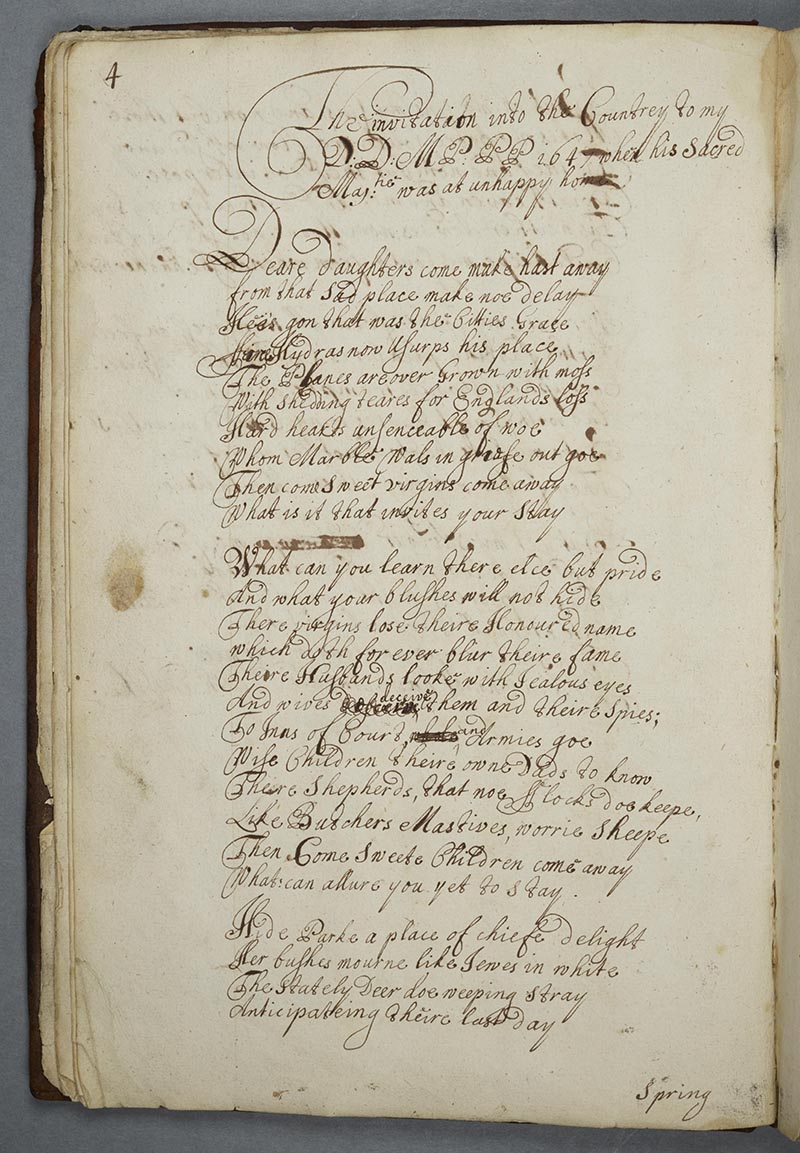 4
The invitation into the Countrey to my
D: D: M P: PP 1647 when his Sacred
Maj:tie was at unhappy home
Deare Daughters come make hast away
from that Sad place make noe delay
Hee's gon that was the Citties Grace
Hydras now Usurps his place
The Planes are over Grown with moss
With shedding teares for Englands loss
Hard hearts unsenceable of woe
Whom Marble Wals in griefe out goe
Then come Sweet virgins come away
What is it that invites your Stay
What can you learn there elce but pride
And what your blushes will not hide
There virgins lose theire Honoured name
which doth for ever blur theire fame
Theire Husbands looke with Jealous eyes
And wives deceive them and theire Spies;
To Inns of Court, and Armies goe
Wise Children theire owne Dads to know
There Shepherds, that noe Flocks doe keepe,
Like Butchers Mastives, worrie Sheepe
Then Come Sweete Children come away
What can allure you yet to stay.
Hide Parke a place of chiefe delight
Her bushes mourne like Jewes in white
The Stately Deer doe weeping Stray
Anticipateing theire last day
Spring